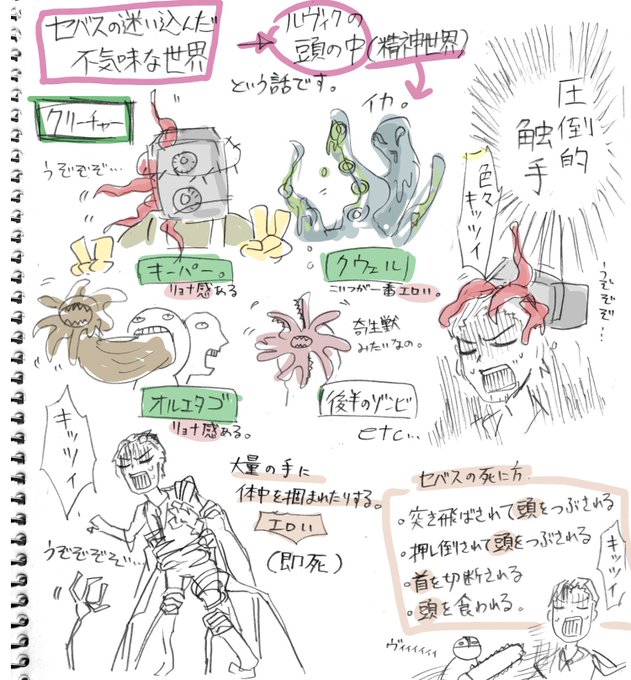 セバスの迷い込んだ
不気味な世界
ルヴィクの
頭の中(精神世界)
という話です。
クリーチャー
うぞぞぞ…
イカ。
圧倒的
触手
色々
キッツイ
うぞぞぞ…
キーパー。
リョナ感ある
クウェル
こいつが一番エロい。
奇生獣
みたいなの。
オルエタゴ
リョナ感ある。
後半のゾンビ
etc…
キッツイ
大量の手に
体中を掴まれたりする。
エロい
(即死)
うぞぞぞぞ…
セバスの死に方
・突き飛ばされて頭をつぶされる
・押し倒されて頭をつぶされる
・首を切断される
・頭を食われる。
キッツイ
ヴィィィィィ